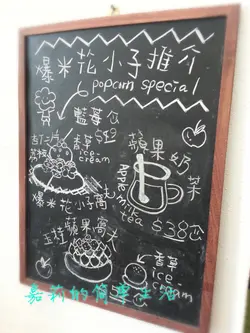 爆米花小子推介
popcorn special
藍莓
香草
ice
cream
$
爆米花小子窩
蘋果奶
茶
Apple milk tea
$38
蘋果窩夫
香草
ice
cream
嘉莉的簡單生活